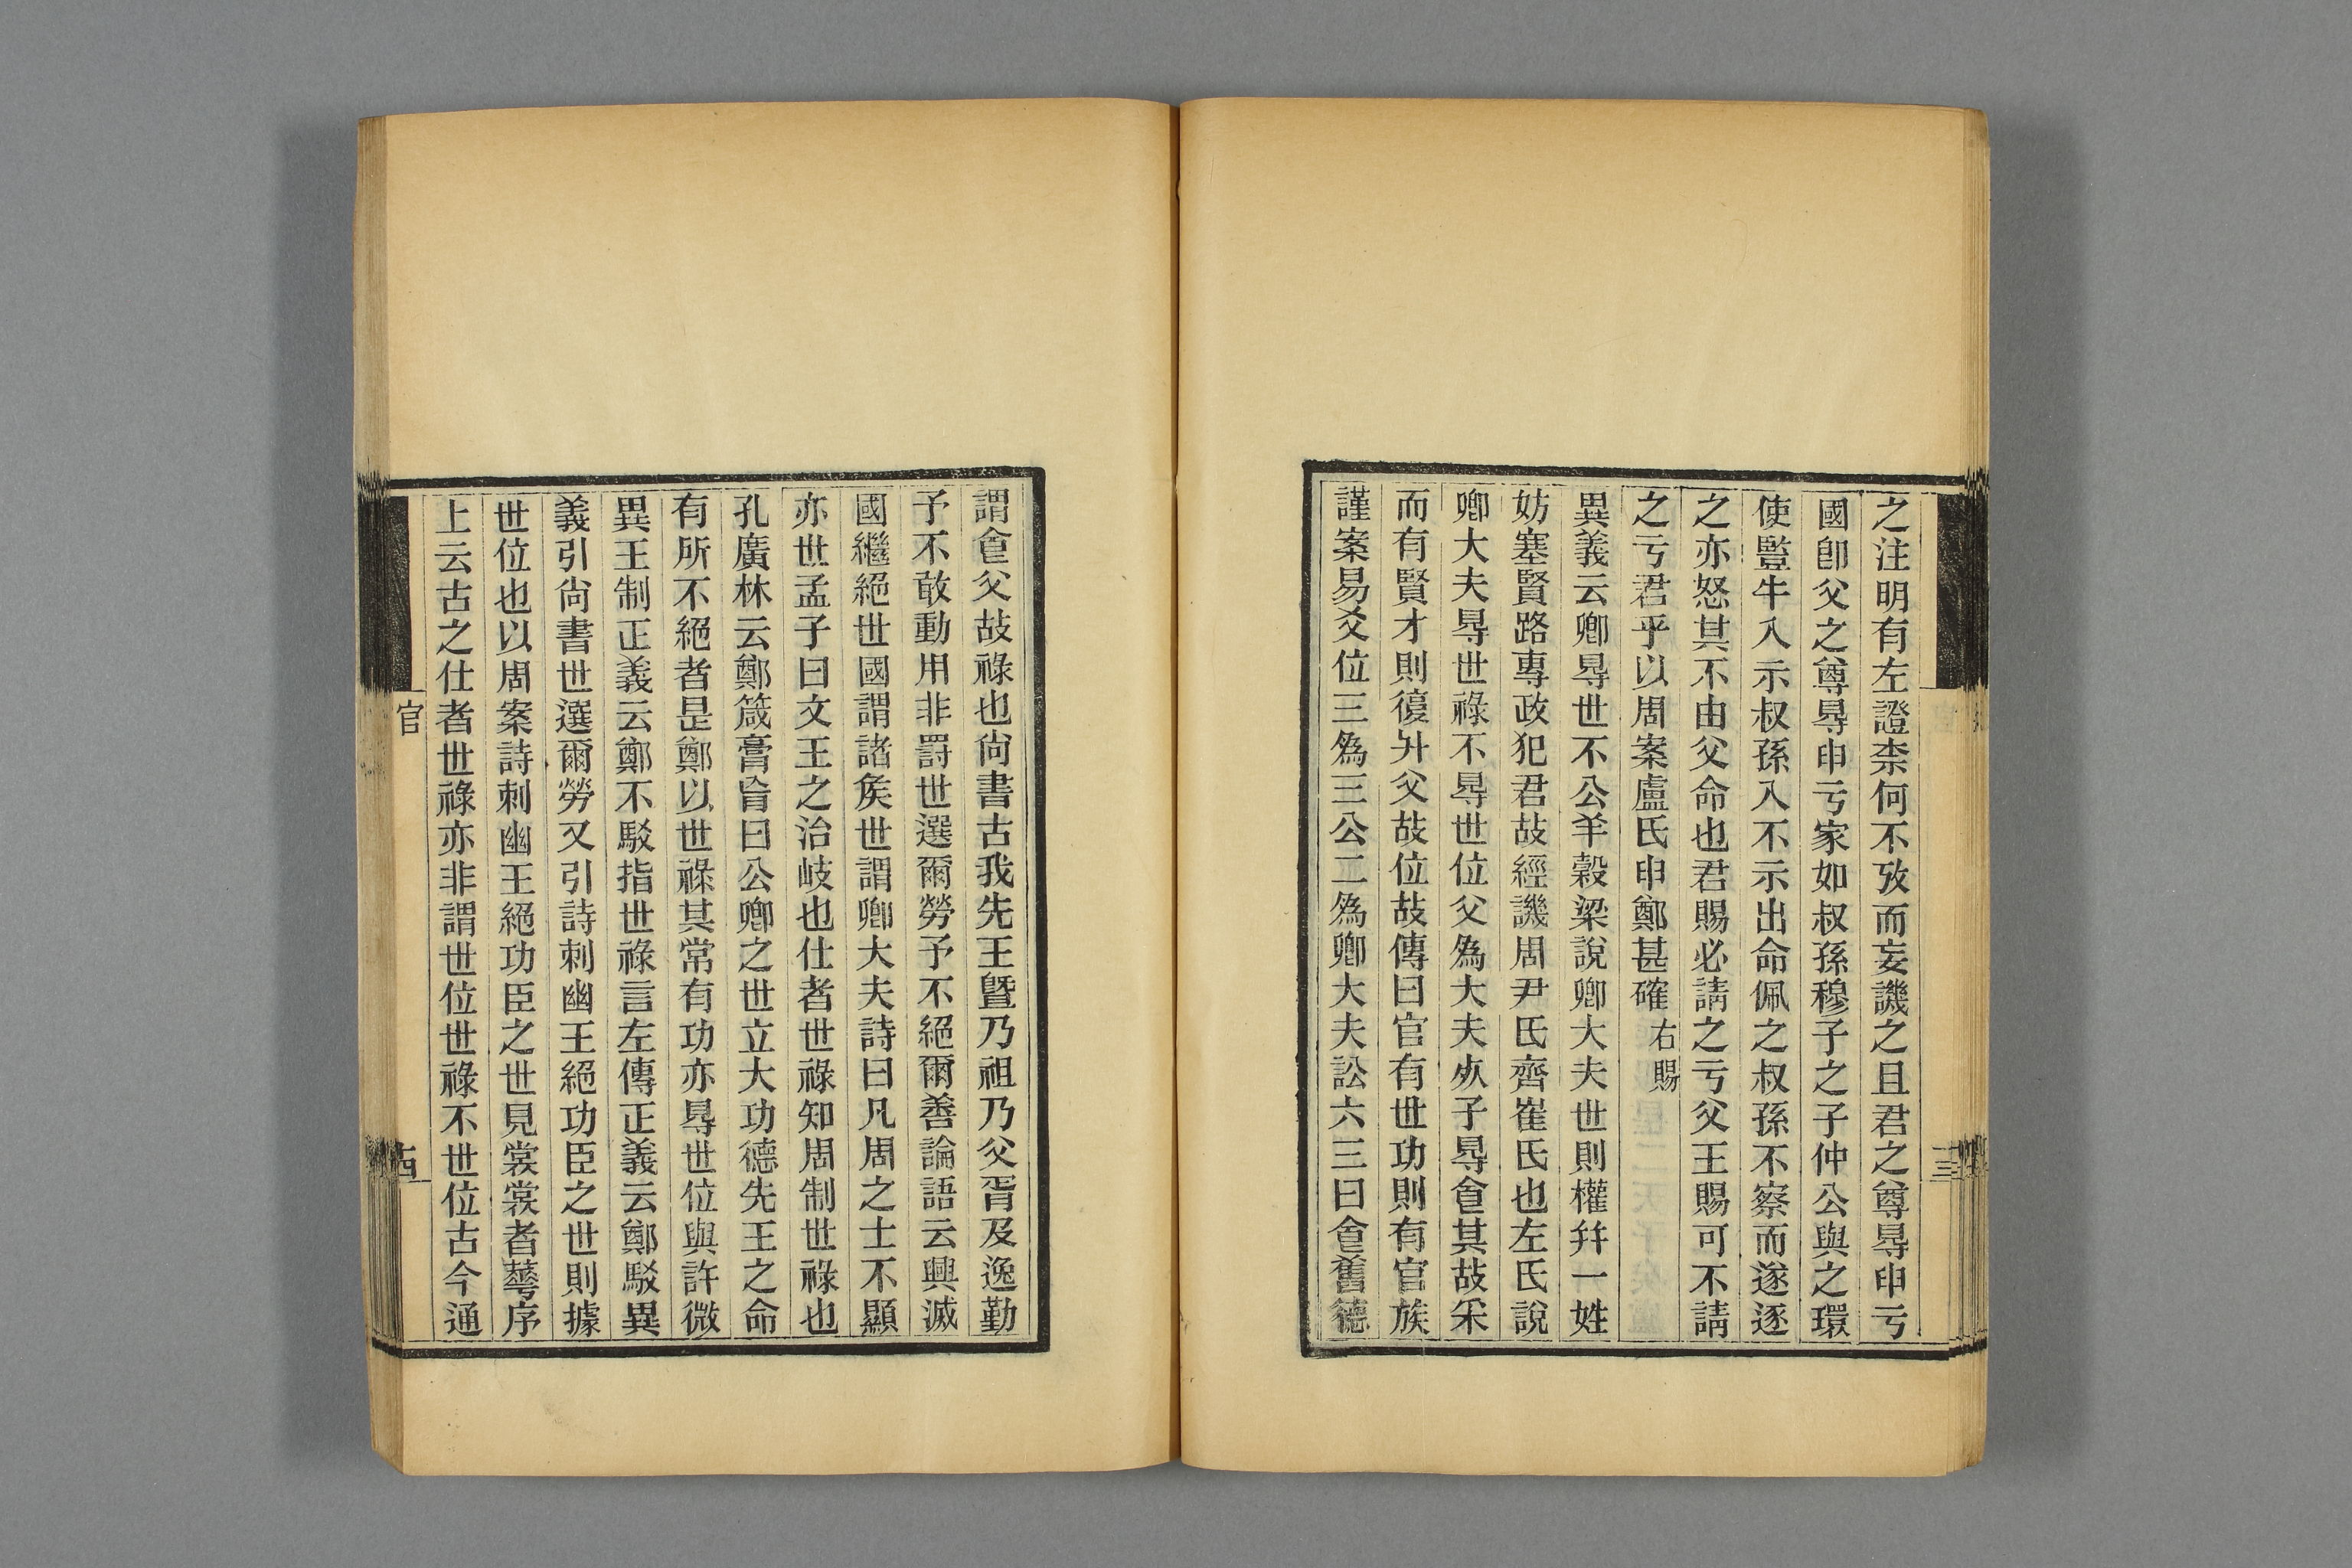 之注明有左證柰何不攷而妄譏之且君之尊㝵申亏
國卽父之尊㝵申亏家如叔孫穆子之子仲公與之環
使豎牛入示叔孫入不示出命佩之叔孫不察而遂逐
之亦怒其不由父命也君賜必請之亏父王賜可不請
之亏君乎以周案盧氏申鄭甚確右賜
異義云卿㝵世不公羊穀梁說卿大夫世則權并一姓
妨塞賢路專政犯君故經譏周尹氏齊崔氏也左氏說
卿大夫㝵世祿不㝵世位父爲大夫㱙子㝵㑹其故采
而有賢才則復升父故位故傳曰官有世功則有官族
謹案易爻位三爲三公二爲卿大夫訟六三曰㑹舊德
謂㑹父故祿也尙書古我先王曁乃祖乃父胥及逸勤
予不敢動用非罰世選爾勞予不絕爾善論語云興滅
國繼絕世國謂諸矦世謂卿大夫詩曰凡周之士不顯
亦世孟子曰文王之治岐也仕者世祿知周制世祿也
孔廣林云鄭箴膏肓曰公卿之世立大功德先王之命
有所不絕者是鄭以世祿其常有功亦㝵世位與許微
異王制正義云鄭不駁指世祿言左傳正義云鄭駁異
義引尙書世選爾勞又引詩刺幽王絕功臣之世則據
世位也以周案詩刺幽王絕功臣之世見裳裳者蕐序
上云古之仕者世祿亦非謂世位世祿不世位古今通
官